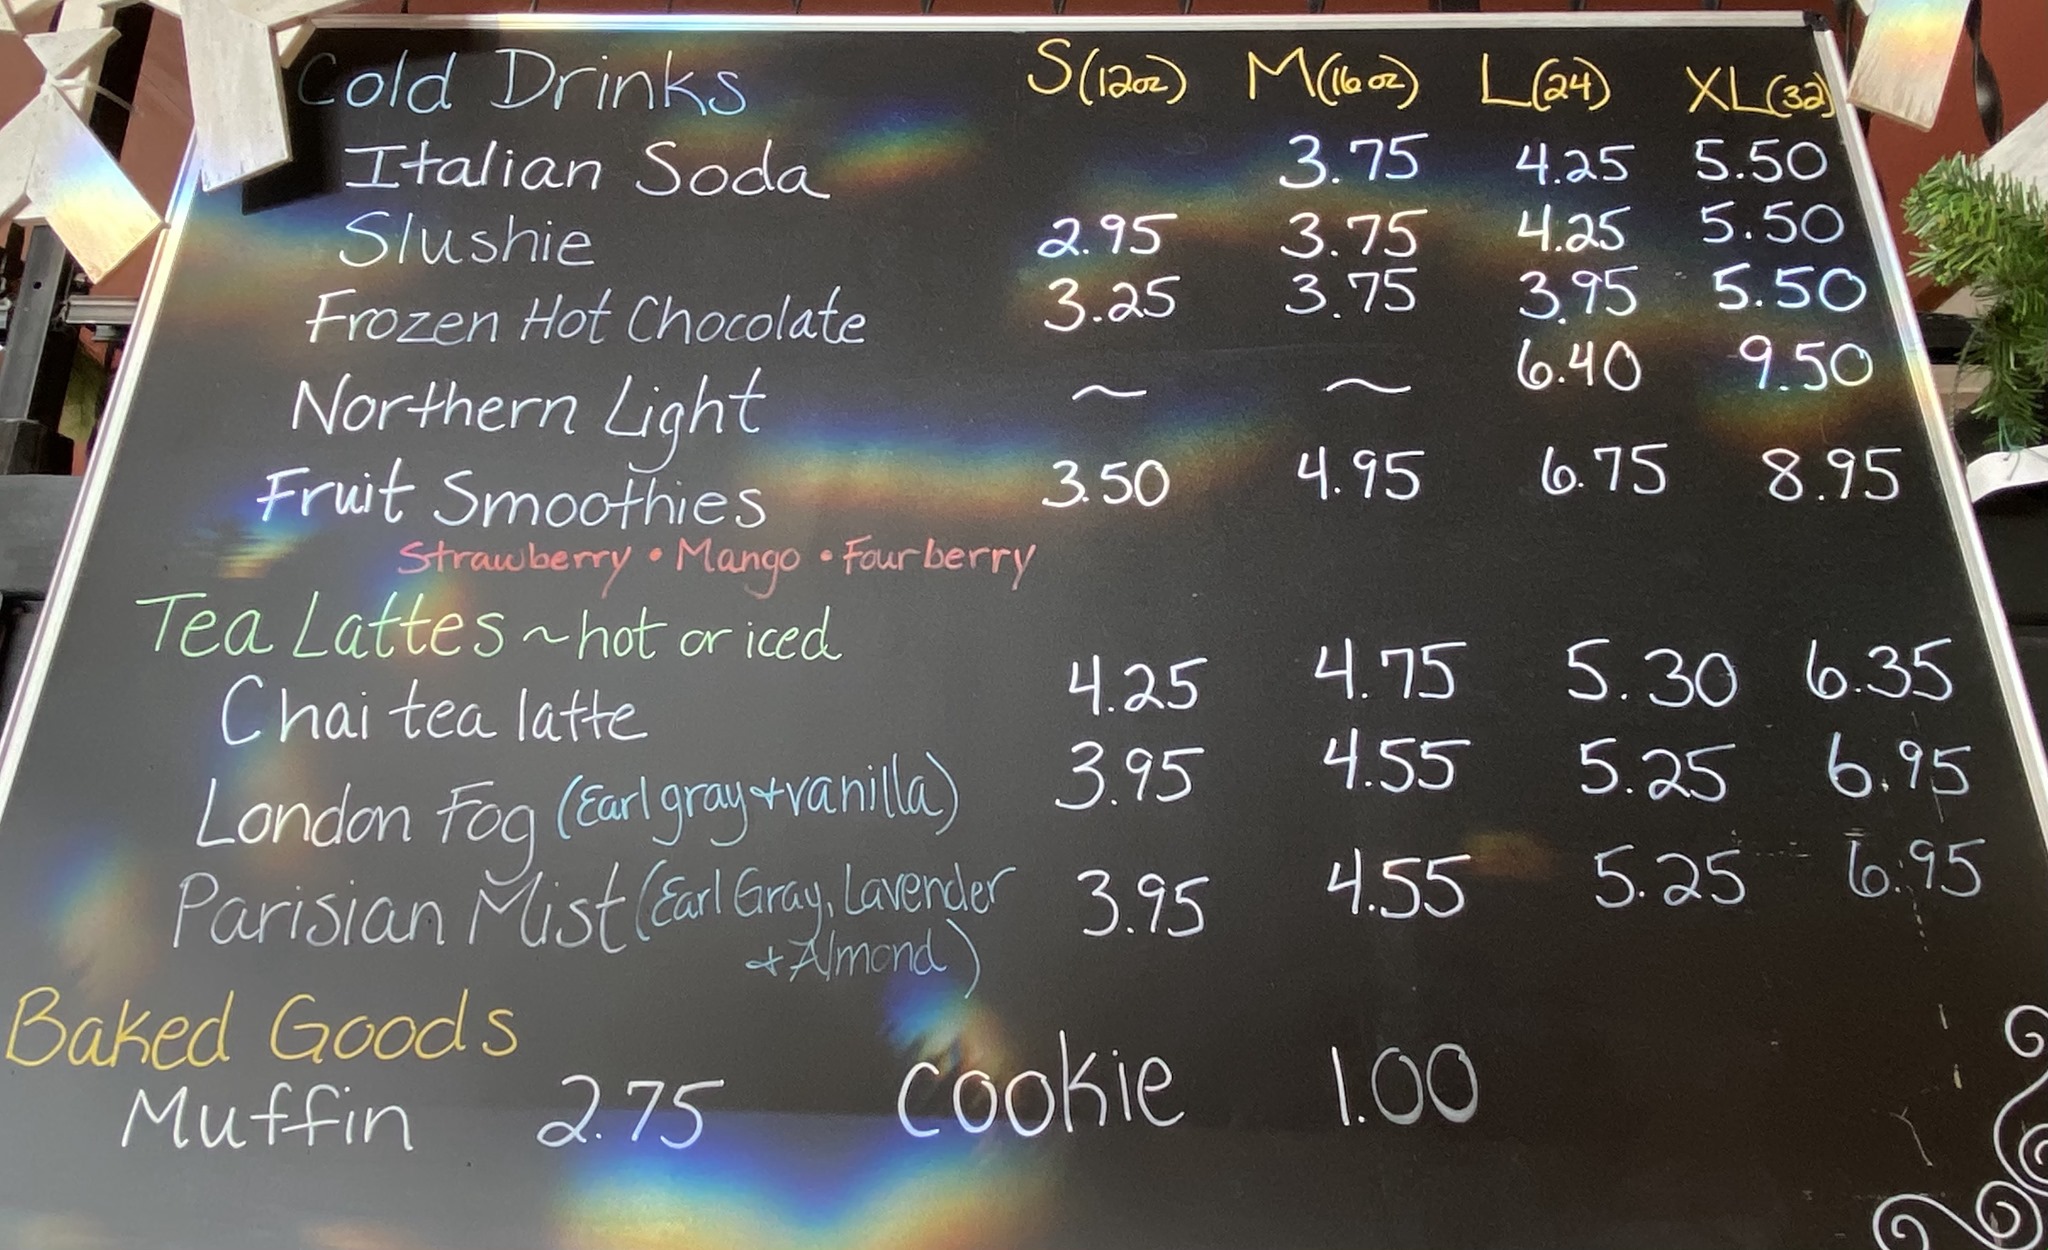 Cold Drinks S(12oz) M(16oz) L(24) XL(32)
Italian Soda 3.75 4.25 5.50
Slushie 2.95 3.75 4.25 5.50
Frozen Hot Chocolate 3.25 3.75 3.95 5.50
Northern Light ~ ~ 6.40 9.50
Fruit Smoothies 3.50 4.95 6.75 8.95
Strawberry • Mango • Fourberry
Tea Lattes ~ hot or iced
Chai tea latte 4.25 4.75 5.30 6.35
London Fog (Earl gray + vanilla) 3.95 4.55 5.25 6.95
Parisian Mist (Earl Gray, Lavender 3.95 4.55 5.25 6.95
+ Almond)
Baked Goods
Muffin 2.75 Cookie 1.00